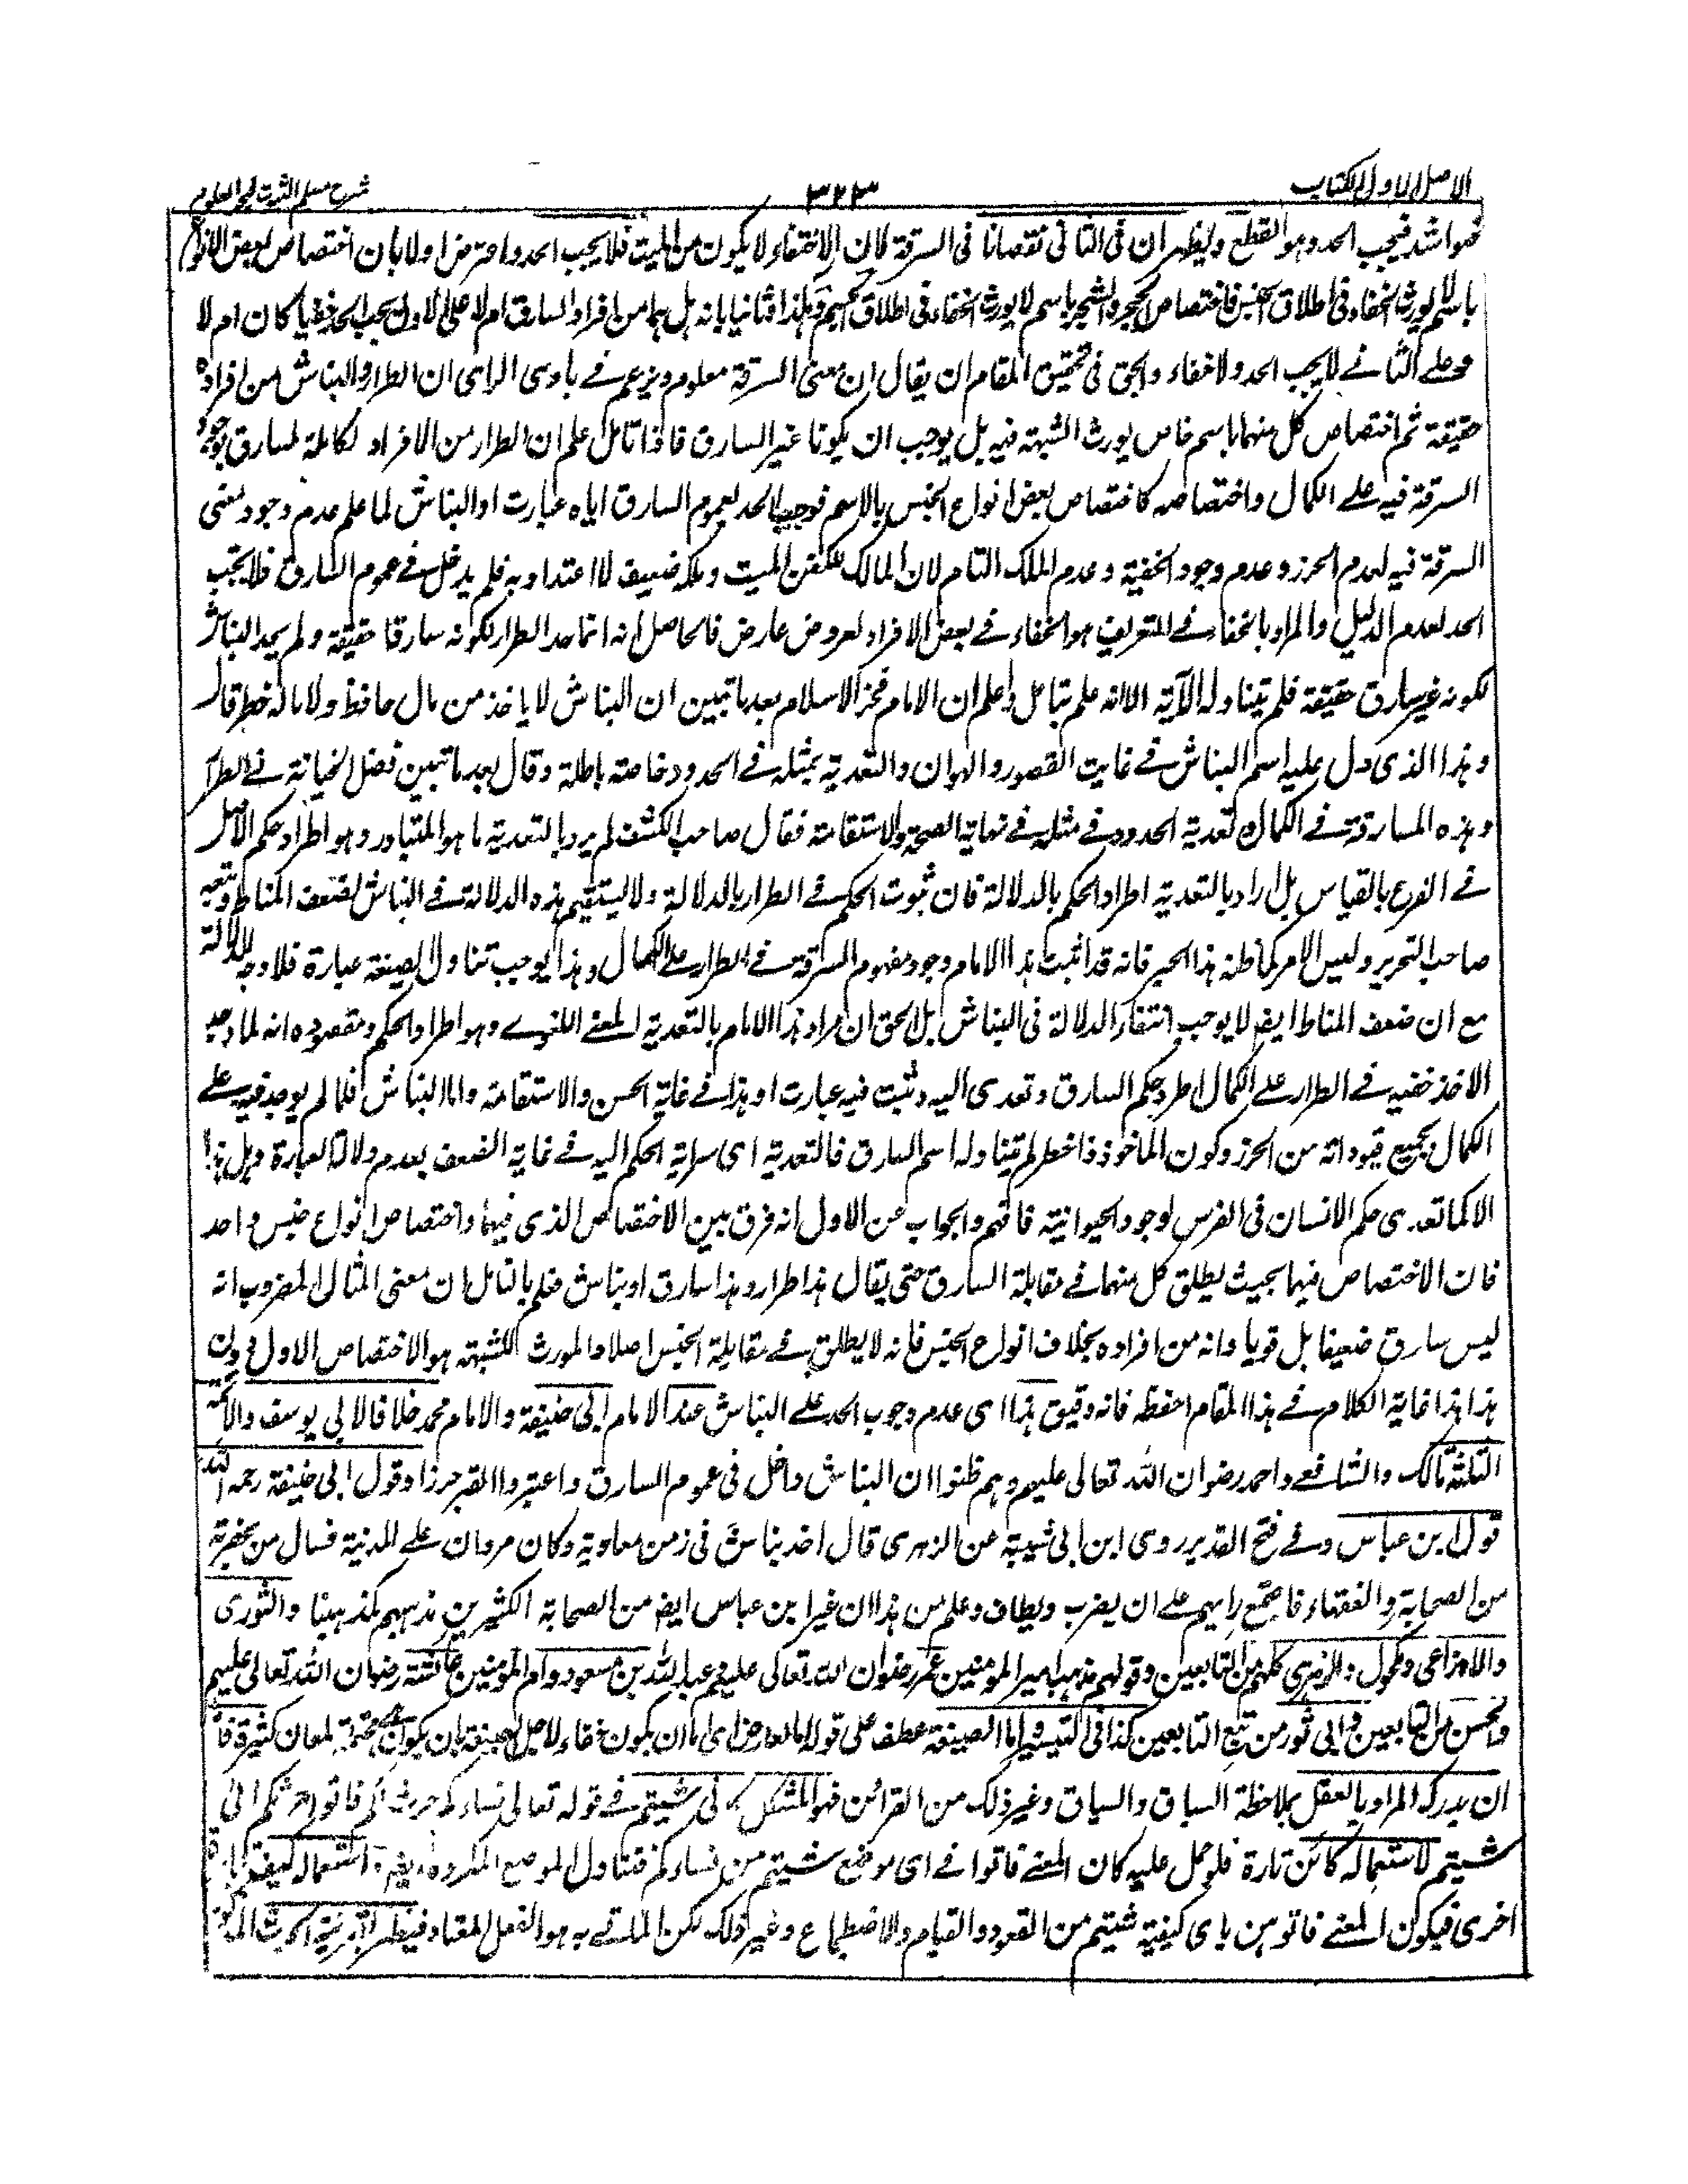 الاصل الاول الكتاب
٣٢٣
شرح مسلم الثبوت لبحر العلوم
فهو اشد فيجب الحد وهو القطع وليظهر ان فى الثانى نقصانا فى السرقة لان الاختفاء لا يكون من الميت فلا يجب الحد واعترض اولا بان اختصاص بعض الانواع
باسم لا يورث الخفاء فى اطلاق الجنس فاختصاص الحجر والشجر باسم لا يورث الخفاء فى اطلاق الجسم فكذا هذا وثانيا بانه هل هما من افراد السارق ام لا على الاول يجب الحد خفيا كان ام لا
وعلى الثانى لا يجب الحد ولا خفاء والحق فى تحقيق المقام ان يقال ان معنى السرقة معلوم ويزعم فى بادى الراى ان الطرار والنباش من افراده
حقيقة ثم اختصاص كل منهما باسم خاص يورث الشبهة فيه بل يوجب ان يكونا غير السارق فاذا تامل علم ان الطرار من الافراد الكاملة لسارق بوجود
السرقة فيه على الكمال واختصاصه كاختصاص بعض انواع الجنس بالاسم فوجب الحد لعموم السارق اياه عبارت او النباش لما علم عدم وجود معنى
السرقة فيه لعدم الحرز وعدم وجود الخفية وعدم الملك التام لان المالك للكفن الميت وملكه ضعيف لا اعتداد به فلم يدخل فى عموم السارق فلا يجب
الحد لعدم الدليل والمراد بالخفاء فى التعريف هو الخفاء فى بعض الافراد لعروض عارض فالحاصل انه انما حد الطرار لكونه سارقا حقيقة ولم يحد النباش
لكونه غير سارق حقيقة فلم يتناوله الآية الا انه علم بتامل واعلم ان الامام فخر الاسلام بعد ما تبين ان النباش لا ياخذ من مال حافظ ولا ماله خطر قال
وهذا الذى دل عليه اسم النباش فى غايت القصور والهوان والتعدية بمثله فى الحدود خاصة باطلة وقال بعد ما تبين فضل الخيانة فى الطرار
وهذه المسارقة فى الكمال تعدية الحدود فى مثله فى نهاية الصحة والاستقامة فقال صاحب الكشف لم يرد بالتعدية ما هو المتبادر وهو اطراد حكم الاصل
فى الفرع بالقياس بل اراد بالتعدية اطراد الحكم بالدلالة فان ثبوت الحكم فى الطرار بالدلالة ولا يستقيم هذه الدلالة فى النباش لضعف المناط وتبعه
صاحب التحرير وليس الامر كما ظنه هذا الحبر فانه قد اثبت هذا الامام وجود مفهوم السرقة فى الطرار على الكمال وهذا يوجب تناول الصيغة عبارة فلا وجه للدلالة
مع ان ضعف المناط ايضا لا يوجب انتفاء الدلالة فى النباش بل الحق ان مراد هذا الامام بالتعدية المعنى اللغوى وهو اطراد الحكم ومقصوده انه لما وجد
الاخذ خفية فى الطرار على الكمال اطرد حكم السارق وتعدى اليه وثبت فيه عبارت او هذا فى غاية الحسن والاستقامة واما النباش فلما لم يوجد فيه على
الكمال بجميع قيوداته من الحرز وكون الماخوذ ذا خطر لم يتناوله اسم السارق فالتعدية اى سراية الحكم اليه فى غاية الضعف بعدم دلالة العبارة وهل هذا
الا كما تعدى حكم الانسان فى الفرس لوجود الحيوانية فافهم والجواب عن الاول انه فرق بين الاختصاص الذى فيهما واختصاص انواع جنس واحد
فان الاختصاص فيهما بحيث يطلق كل منهما فى مقابلة السارق حتى يقال هذا طرار وهذا سارق او نباش فعلم بالتامل ان معنى المثال المضروب انه
ليس سارق ضعيفا بل قويا وانه من افراده بخلاف انواع الجنس فانه لا يطلق فى مقابلة الجنس اصلا والمورث للشبهة هو الاختصاص الاول دون
هذا هذا غاية الكلام فى هذا المقام احفظه فانه دقيق هذا اى عدم وجوب الحد على النباش عند الامام ابى حنيفة والامام محمد خلافا لابى يوسف والائمة
الثلثة مالك والشافعى واحمد رضوان الله تعالى عليهم وهم ظنوا ان النباش داخل فى عموم السارق واعتبروا القبر حرزا وقول ابى حنيفة رحمه الله
قول ابن عباس وفى فتح القدير روى ابن ابى شيبة عن الزهرى قال اخذ نباش فى زمن معاوية وكان مروان على المدينة فسال من بحضرته
من الصحابة والفقهاء فاجتمع رايهم على ان يضرب ويطاف وعلم من هذا ان غير ابن عباس ايضا من الصحابة الكثيرين مذهبهم كمذهبنا والثورى
والاوزاعى ومكحول والزهرى كلهم من التابعين وقولهم مذهب امير المؤمنين عمر رضوان الله تعالى عليه وعبد الله بن مسعود وام المؤمنين عائشة رضوان الله تعالى عليهم
والحسن من التابعين وابى ثور من تبع التابعين كذا فى التيسير واما الصيغة عطف على قوله اما لعارض اى اما ان يكون خفاء لاجل الصيغة بان يكون محتملة لمعان كثيرة فاما
ان يدرك المراد بالعقل بملاحظة السباق والسياق وغير ذلك من القرائن فهو المشكل كـ انى شيتم فى قوله تعالى نساءكم حرث لكم فاتوا حرثكم انى
شيتم لاستعماله كاين تارة فلو حمل عليه كان المعنى فاتوا فى اى موضع شيتم من نساءكم فتناول الموضع المكروه ايضا استعماله كيف تارة
اخرى فيكون المعنى فاتوهن باى كيفية شيتم من القعود والقيام والاضطجاع وغير ذلك لكن الماتى به هو الفعل المعتاد فيظهر بقرينة الحرث